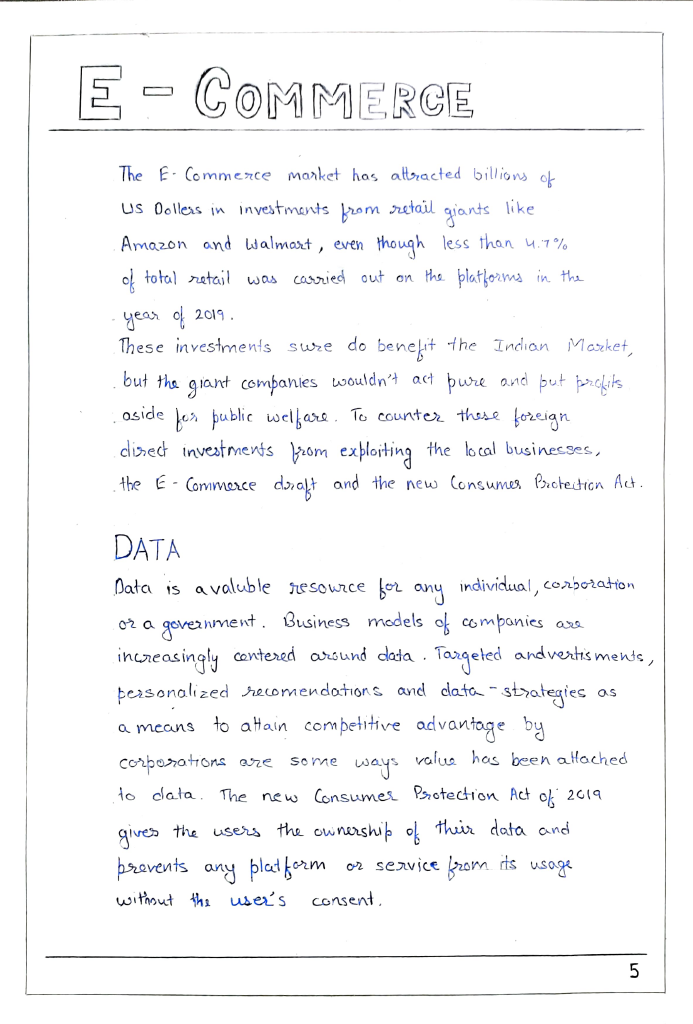 E - COMMERCE
The E-Commerce market has attracted billions of
US Dollers in investments from retail giants like
Amazon and Walmart, even though less than 4.7%
of total retail was carried out on the platforms in the
year of 2019.
These investments sure do benefit the Indian Market,
but the giant companies wouldn't act pure and put profits
aside for public welfare. To counter these foreign
direct investments from exploiting the local businesses,
the E-Commerce draft and the new Consumer Protection Act.
DATA
Data is a valuble resource for any individual, corporation
or a government. Business models of companies are
increasingly centered around data. Targeted andvertisments,
personalized recomendations and data-strategies as
a means to attain competitive advantage by
corporations are some ways value has been attached
to data. The new Consumer Protection Act of 2019
gives the users the ownership of their data and
prevents any platform or service from its usage
without the user's consent.
5